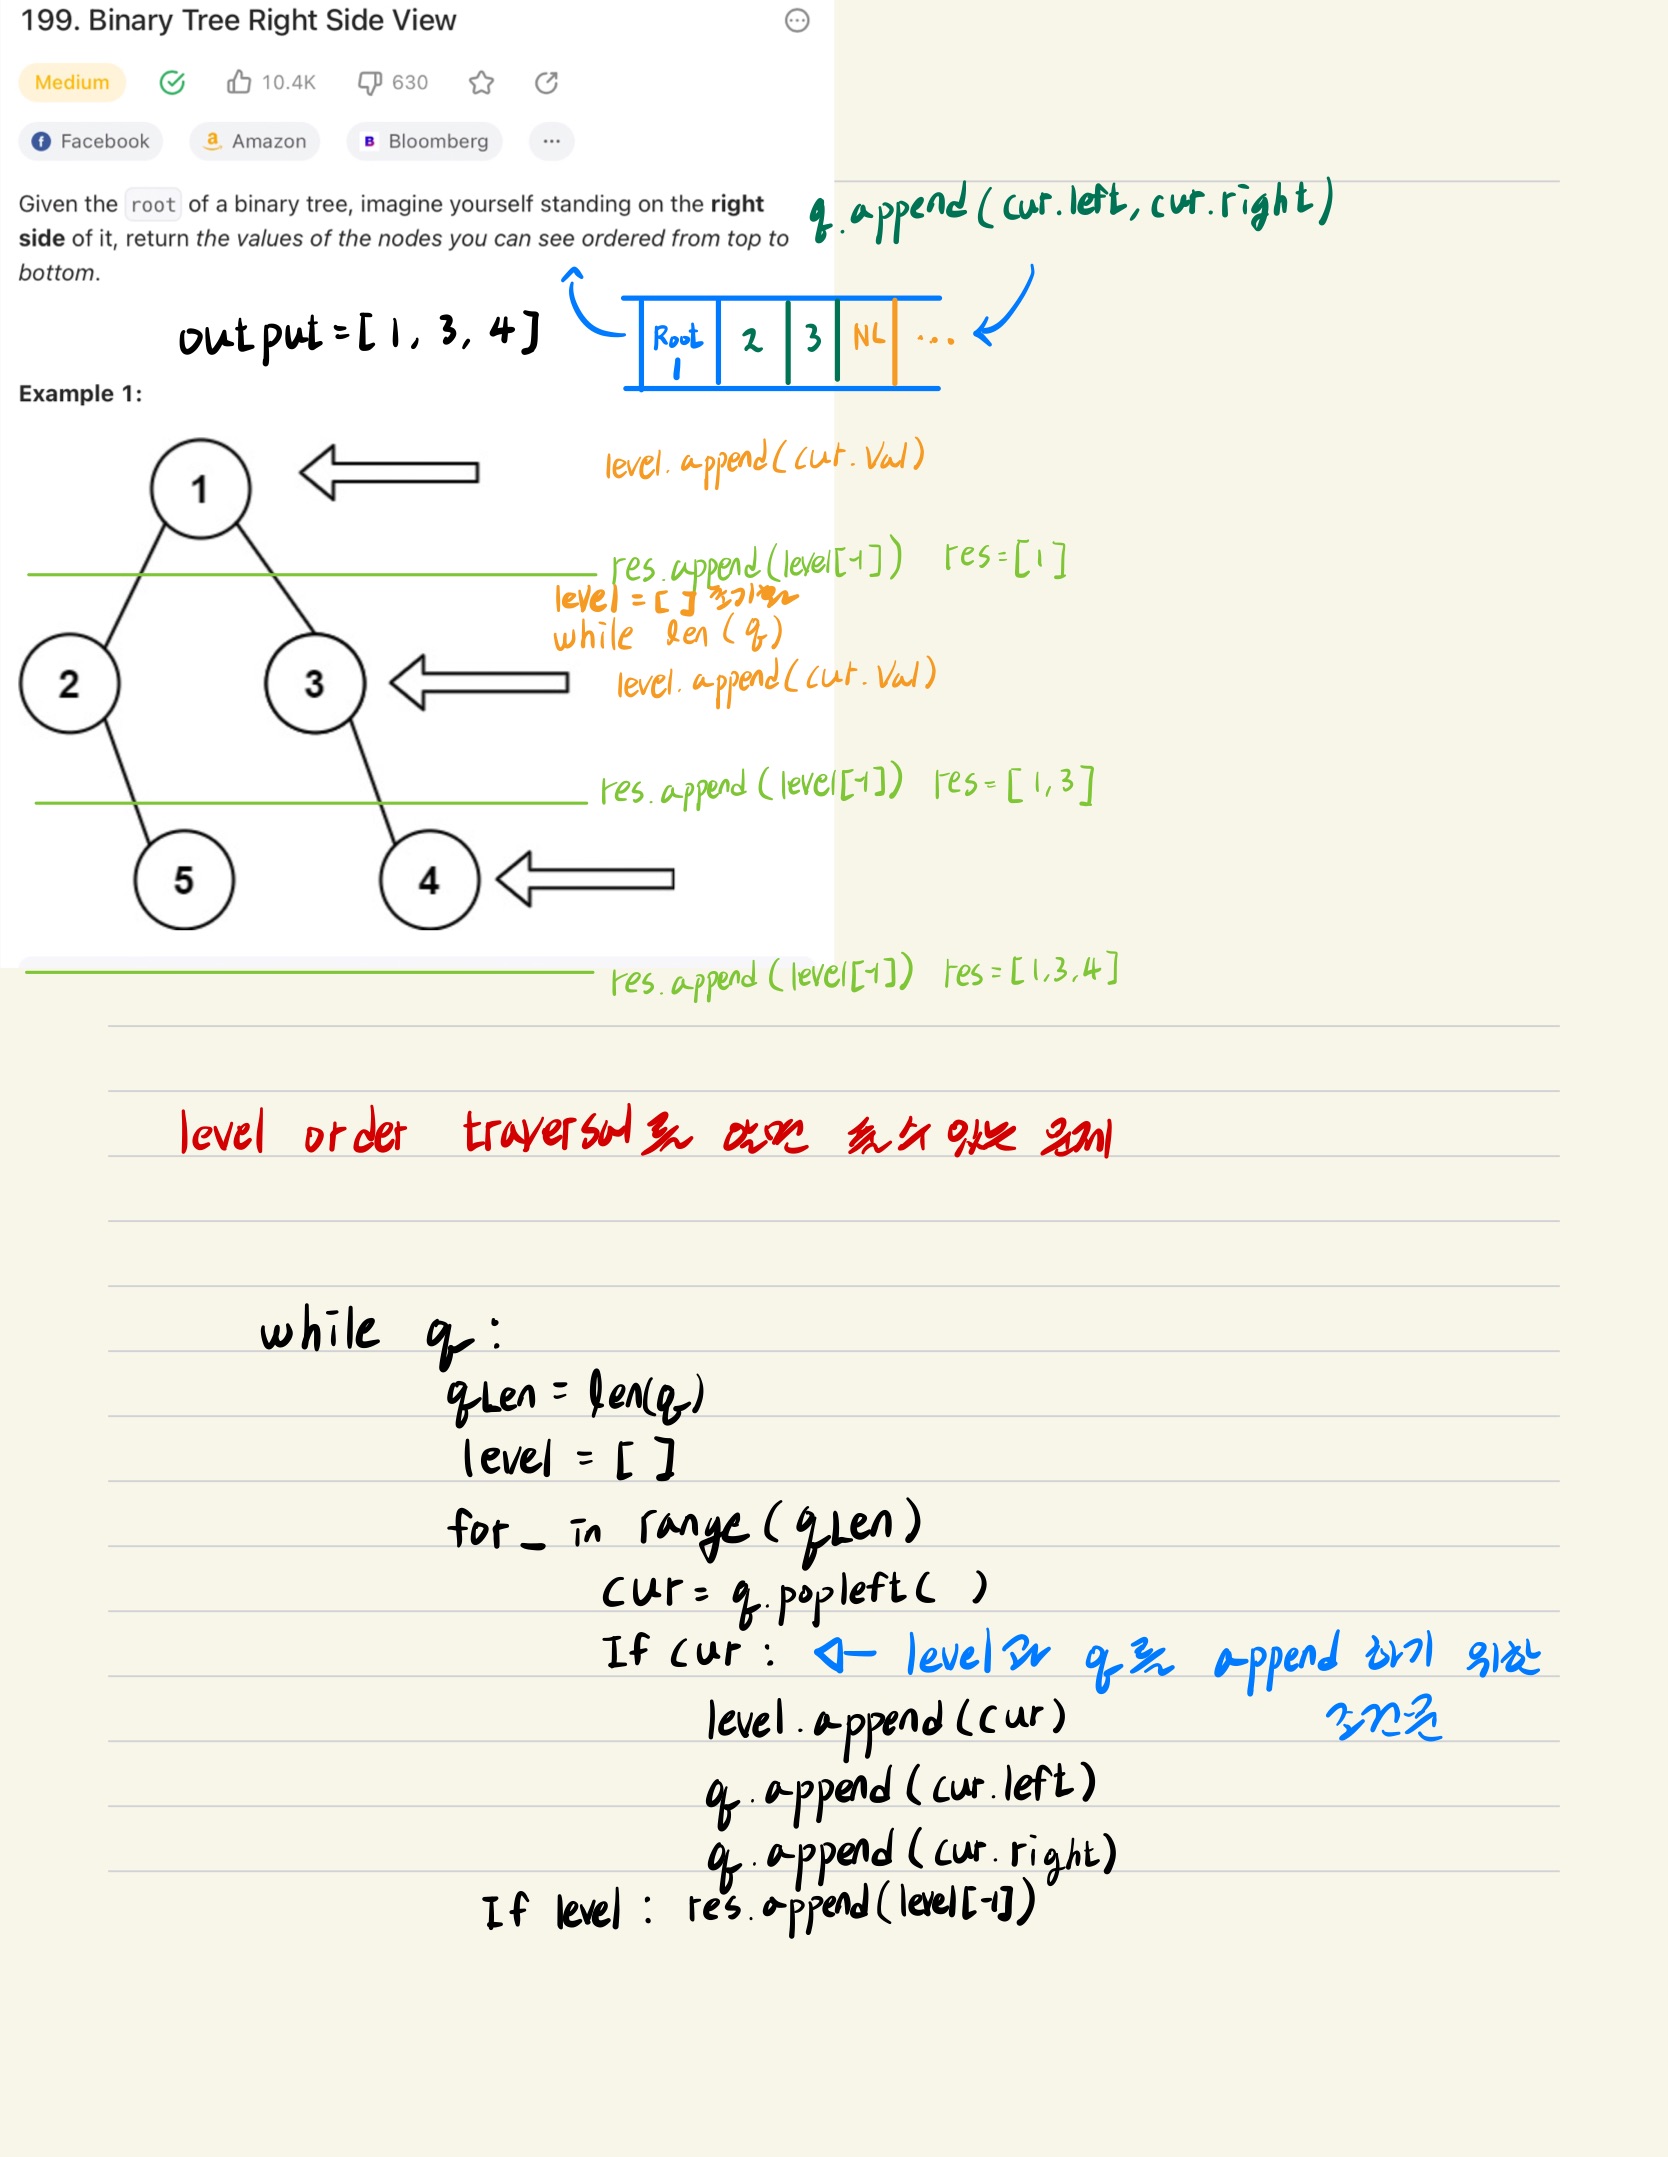 199. Binary Tree Right Side View
Medium 10.4K 630
Facebook Amazon Bloomberg ...
Given the root of a binary tree, imagine yourself standing on the right
side of it, return the values of the nodes you can see ordered from top to
bottom.
q.append(cur.left, cur.right)
output=[1, 3, 4]
Root 1 2 3 NL ...
Example 1:
1
level.append(cur.val)
res.append(level[-1]) res=[1]
level=[] 초기화
while len(q)
2 3
level.append(cur.val)
res.append(level[-1]) res=[1,3]
5 4
res.append(level[-1]) res=[1,3,4]
level order traversal를 알면 풀 수 있는 문제
while q:
qLen = len(q)
level = [ ]
for _ in range(qLen)
cur = q.popleft( )
If cur : ← level과 q를 append 하기 위한
조건문
level.append(cur)
q.append(cur.left)
q.append(cur.right)
If level : res.append(level[-1])